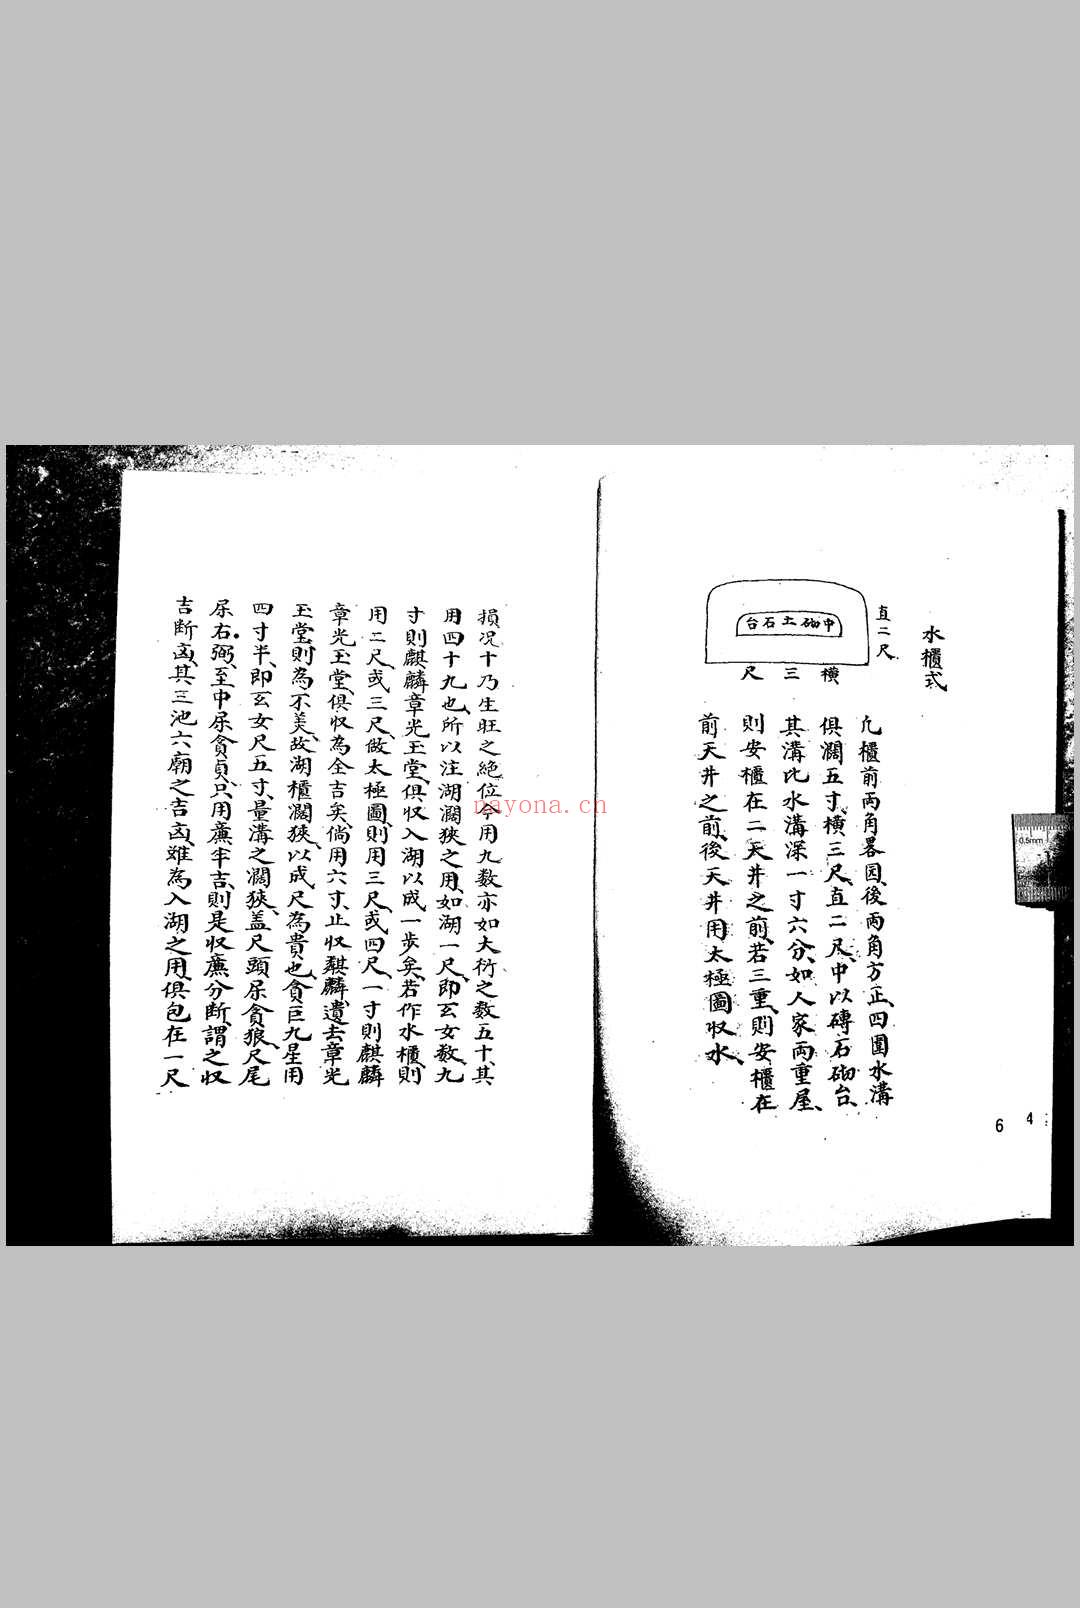 水櫃式
直二尺
中砌土石台
橫三尺
凢櫃前兩角畧圎、後兩角方正、四圍水溝
俱濶五寸、橫三尺、直二尺、中以磚石砌台、
其溝比水溝深一寸六分、如人家兩重屋、
則安櫃在二天井之前、若三重、則安櫃在
前天井之前、後天井用太極圖収水、
損况十乃生旺之絶位今用九数亦如大衍之数五十、其
用四十九也、所以注湖濶狹之用、如湖一尺、即玄女数九
寸則麒麟章光玉堂、俱収入湖以成一步矣、若作水櫃則
用二尺、或三尺、做太極圖、則用三尺、或四尺、一寸則麒麟
章光玉堂、俱収為全吉矣、倘用六寸、止収麒麟、遺去章光
玉堂、則為不美、故湖櫃濶狹、以成尺為貴也、貪巨九星用
四寸半、即玄女尺五寸、量溝之濶狹、盖尺頭屎貪狼、尺尾
屎右弼、至中屎貪貞、只用㢘牢吉、則是収㢘分断、謂之収
吉断凶、其三池六廟之吉凶、雖為入湖之用、俱包在一尺
6 4
0.5mm
nayona.cn